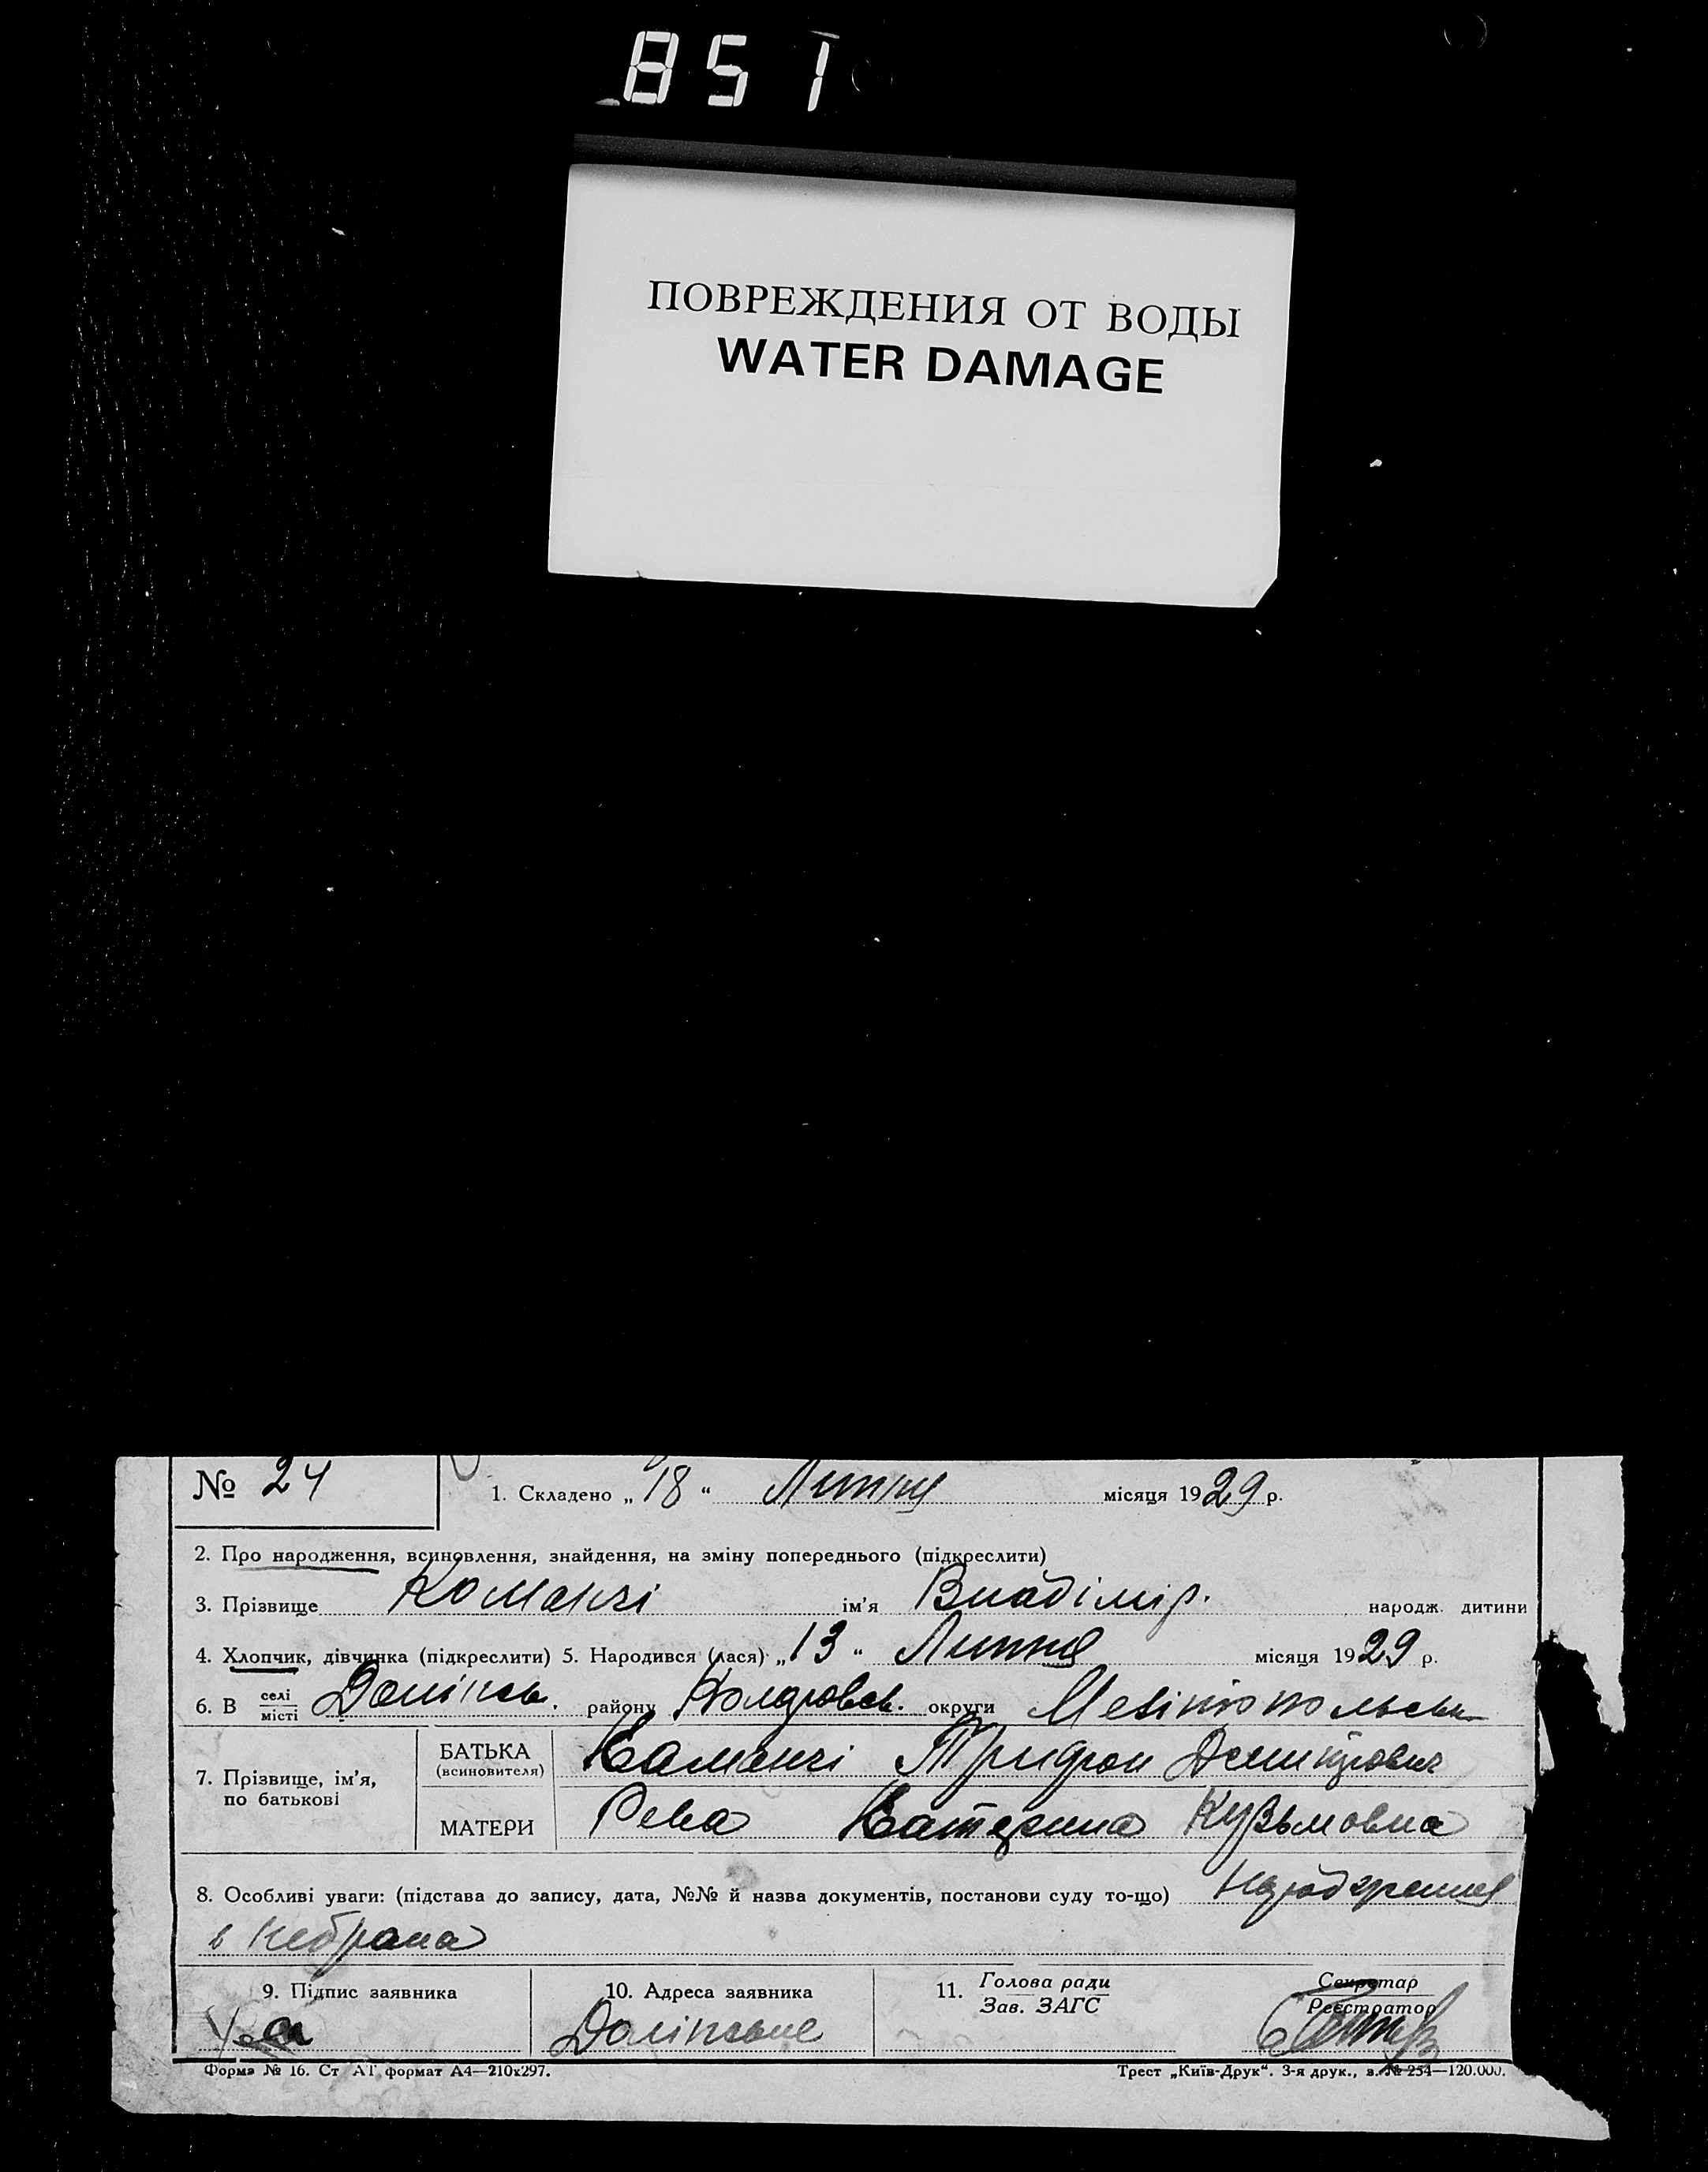 851
ПОВРЕЖДЕНИЯ ОТ ВОДЫ
WATER DAMAGE
№ 24
1. Складено „18“ Липня місяця 1929 р.
2. Про народження, всиновлення, знайдення, на зміну попереднього (підкреслити)
3. Прізвище Команчі ім'я Владімір. народж. дитини
4. Хлопчик, дівчинка (підкреслити) 5. Народився (лася) „13“ Липня місяця 1929 р.
6. В селі місті Долінськ. району округи
7. Прізвище, ім'я, по батькові
БАТЬКА (всиновителя) Каманчі Трифон
МАТЕРИ Рева Катерина Кузьмовна
8. Особливі уваги: (підстава до запису, дата, №№ й назва документів, постанови суду то-що)
9. Підпис заявника
10. Адреса заявника
11. Голова ради Зав. ЗАГС
Секретар Реєстратор
Долінське
Форма № 16. Ст АТ формат А4—210х297.
Трест „Київ-Друк“. 3-я друк., з. № 254—120.000.